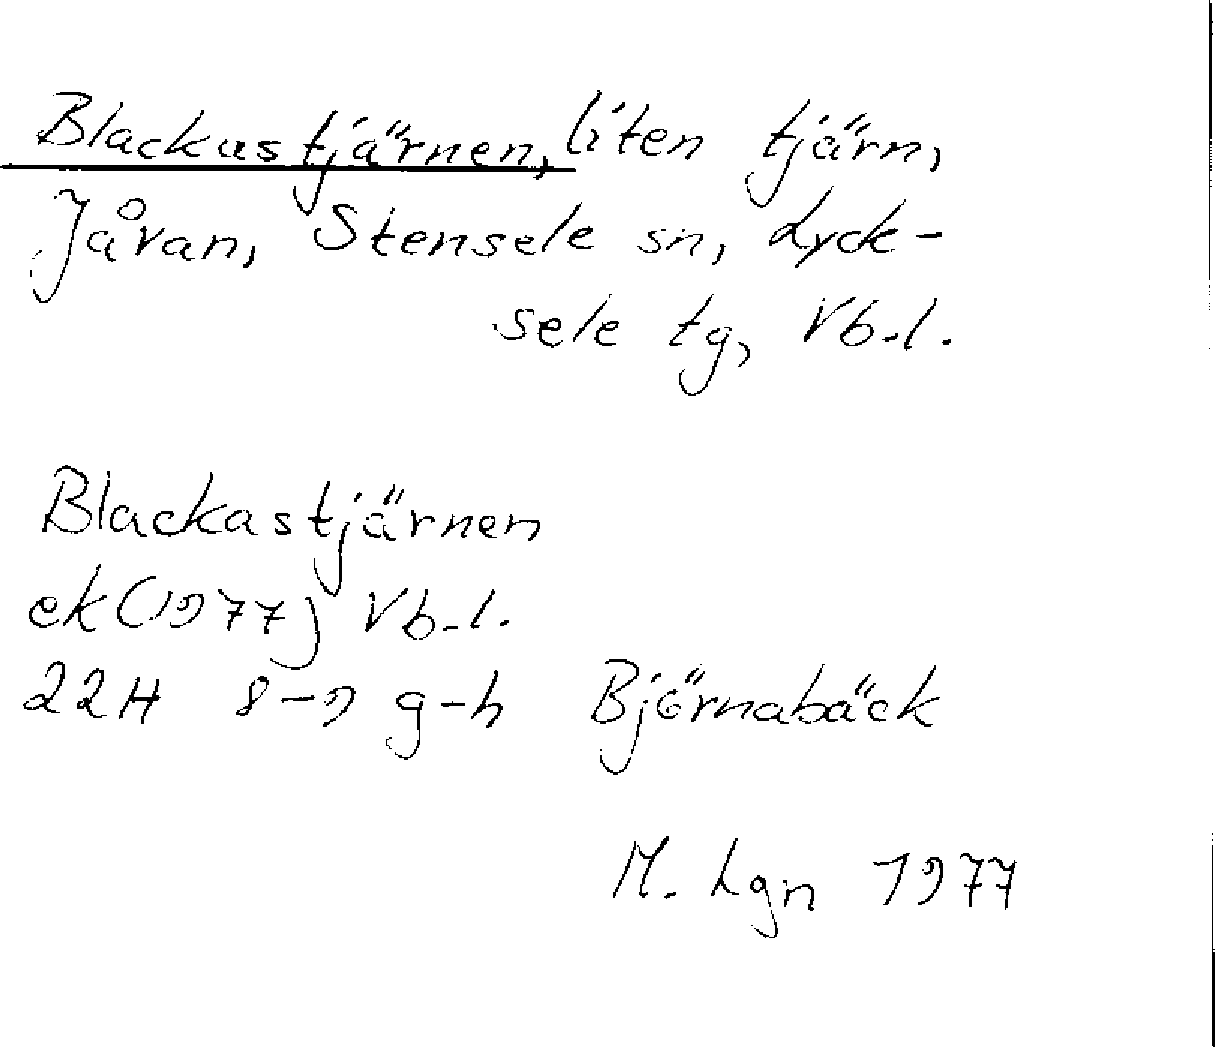 Blackastjärnen, liten tjärn,
Jåran, Stensele sn, Lyck-
sele tg, Vb.l.
Blackastjärnen
ek (1977) Vb.l.
22H 8-9 g-h Björnabäck
M. Lgn 1977